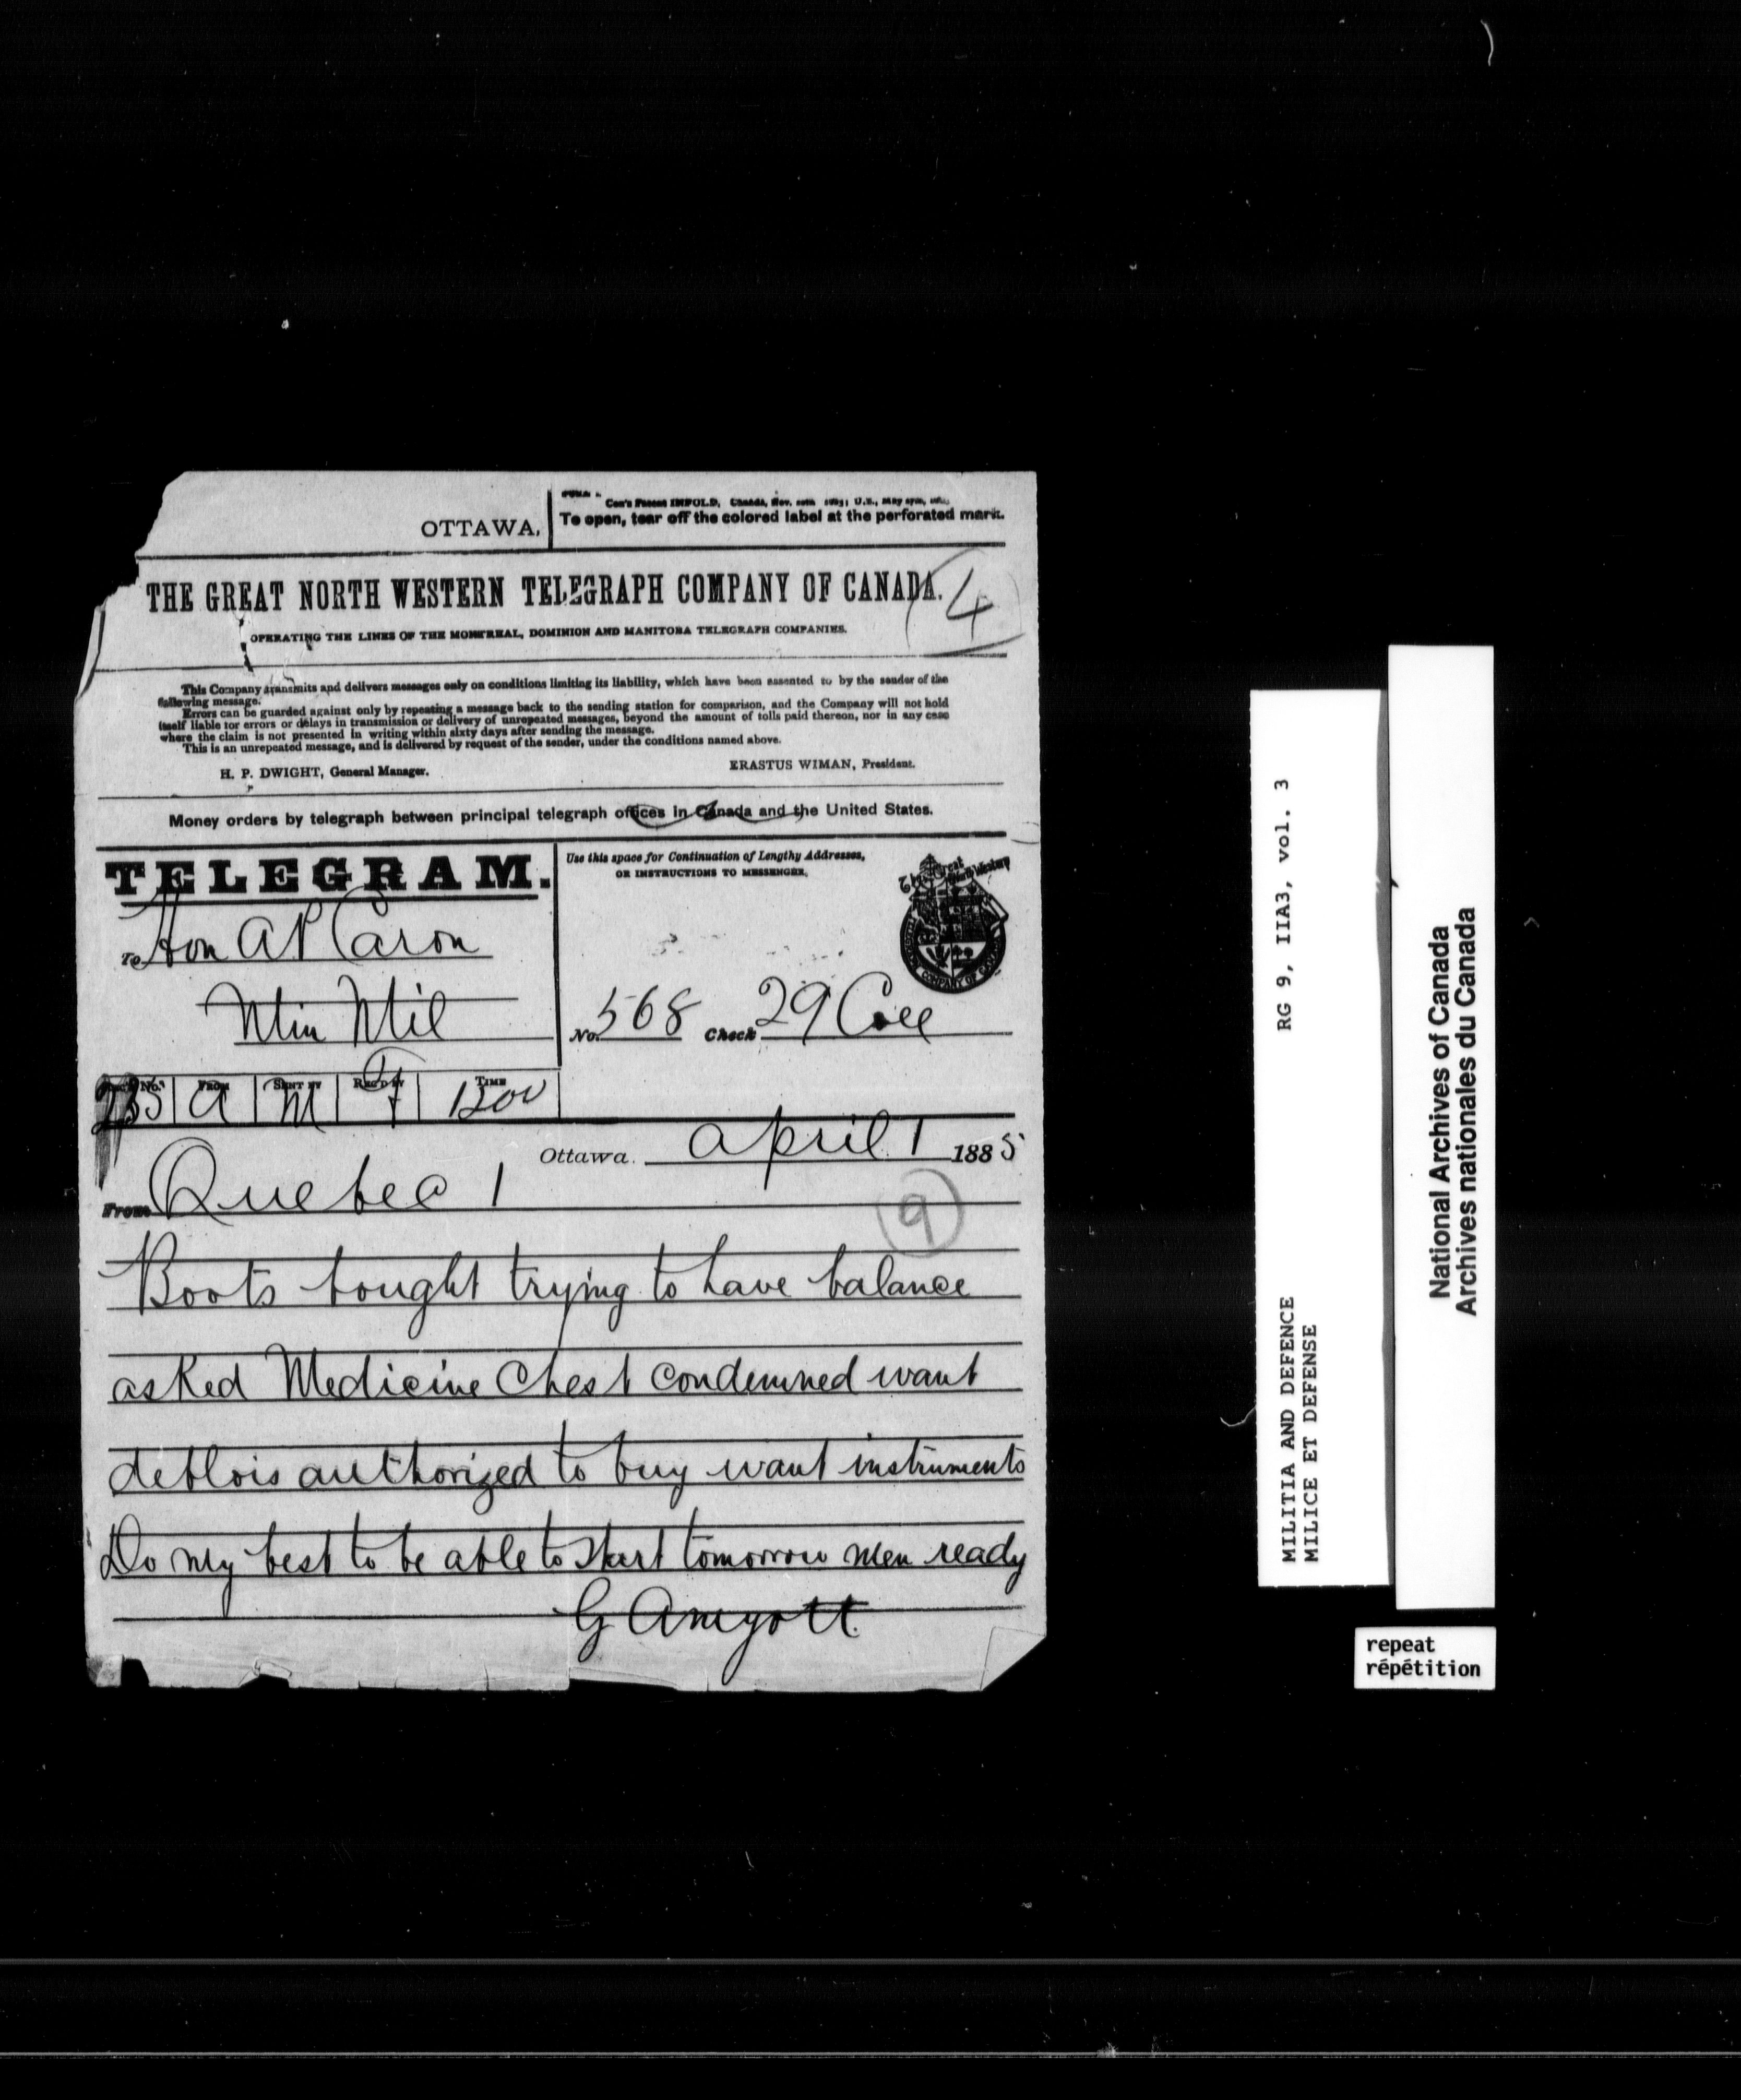 OTTAWA.
To open, tear off the colored label at the perforated mark.
THE GREAT NORTH WESTERN TELEGRAPH COMPANY OF CANADA.
(4
OPERATING THE LINES OF THE MONTREAL, DOMINION AND MANITOBA TELEGRAPH COMPANIES.
This Company transmits and delivers messages only on conditions limiting its liability, which have been assented to by the sender of the
following message.
Errors can be guarded against only by repeating a message back to the sending station for comparison, and the Company will not hold
itself liable for errors or delays in transmission or delivery of unrepeated messages, beyond the amount of tolls paid thereon, nor in any case
where the claim is not presented in writing within sixty days after sending the message.
This is an unrepeated message, and is delivered by request of the sender, under the conditions named above.
H. P. DWIGHT, General Manager.
ERASTUS WIMAN, President.
Money orders by telegraph between principal telegraph offices in Canada and the United States.
TELEGRAM.
Use this space for Continuation of Lengthy Addresses,
OR INSTRUCTIONS TO MESSENGER.
To Hon A P Caron
Min Mil
No. 568 Check 29 Coll
No. FROM SENT BY REC'D BY TIME
a m 1200
Ottawa. April 1 1885
From Quebec 1
9
Boots bought trying to have balance
asked Medicine Chest condemned want
deblois authorized to buy want instruments
Do my best to be able to start tomorrow men ready
G Amyott
RG 9, IIA3, vol. 3
MILITIA AND DEFENCE
MILICE ET DEFENSE
National Archives of Canada
Archives nationales du Canada
repeat
répétition